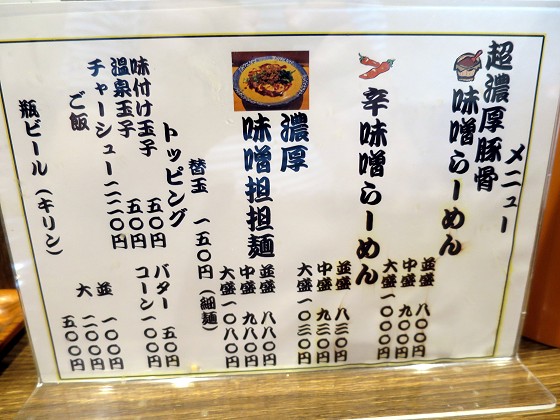 メニュー
超濃厚豚骨
味噌らーめん
並盛 八〇〇円
中盛 九〇〇円
大盛 一〇〇〇円
辛味噌らーめん
並盛 八三〇円
中盛 九三〇円
大盛 一〇三〇円
濃厚
味噌担担麺
並盛 八八〇円
中盛 九八〇円
大盛 一〇八〇円
替玉 一五〇円(細麺)
トッピング
味付け玉子 五〇円
温泉玉子 五〇円
チャーシュー 二二〇円
バター 五〇円
コーン 一〇〇円
ご飯
並 一〇〇円
大 二〇〇円
瓶ビール(キリン) 五〇〇円